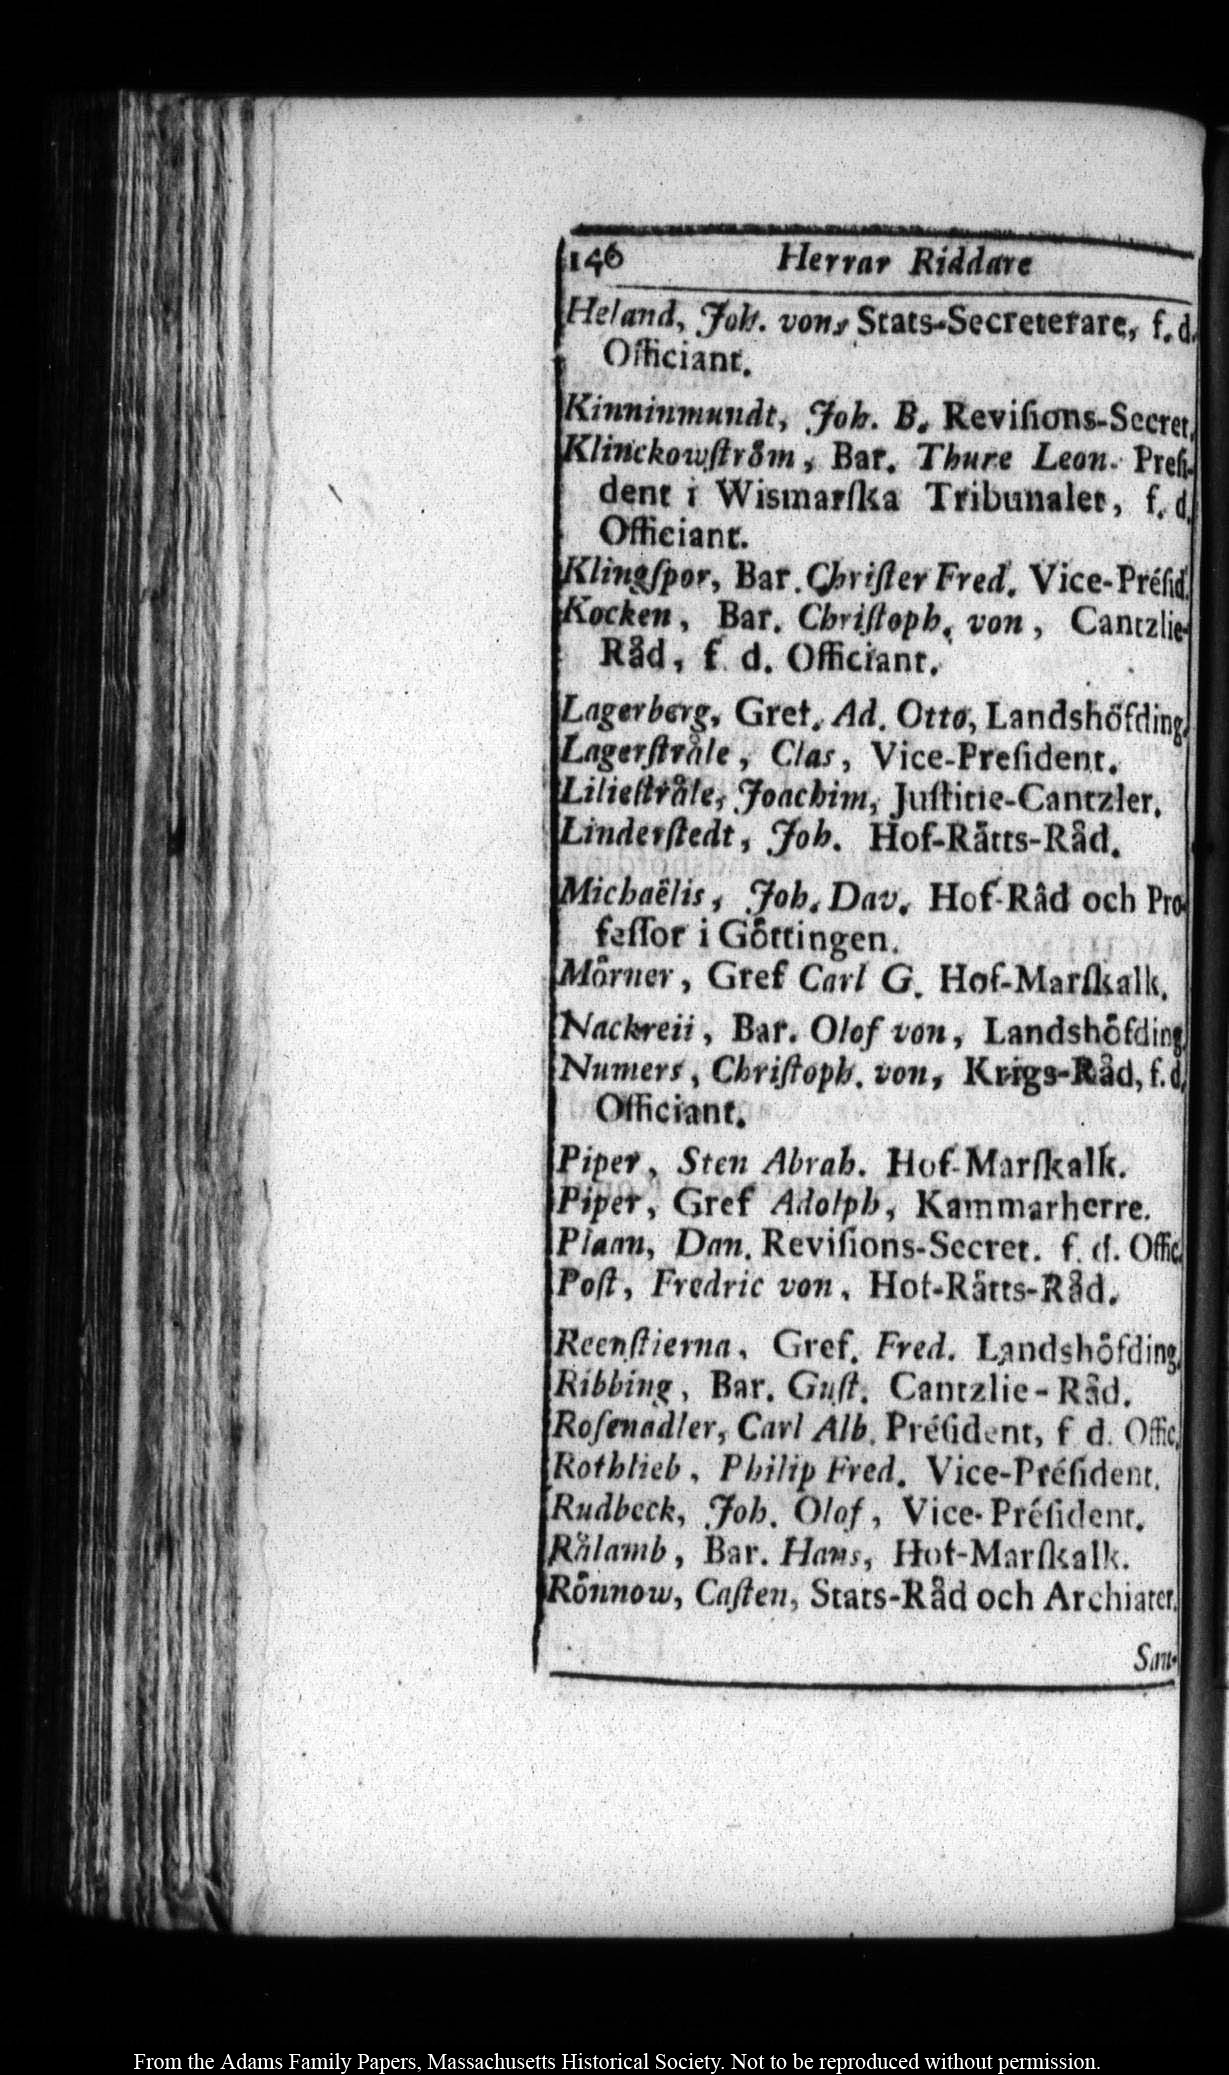 146 Herrar Riddare
Heland, Joh. von, Stats-Secreterare, f. d.
Officiant.
Kinninmundt, Joh. B. Reviſions-Secret.
Klinckowſtröm, Bar. Thure Leon. Preſi-
dent i Wismarſka Tribunalet, f. d.
Officiant.
Klingſpor, Bar. Chriſter Fred. Vice-Préſid.
Kocken, Bar. Chriſtoph. von, Cantzlie-
Råd, f. d. Officiant.
Lagerberg, Gref. Ad. Otto, Landshöfding.
Lagerſtråle, Clas, Vice-Preſident.
Lilieſtråle, Joachim, Juſtitie-Cantzler.
Linderſtedt, Joh. Hof-Rätts-Råd.
Michaëlis, Joh. Dav. Hof-Råd och Pro-
feſſor i Göttingen.
Mörner, Gref Carl G. Hof-Marſkalk.
Nackreii, Bar. Olof von, Landshöfding.
Numers, Chriſtoph. von, Krigs-Råd, f. d.
Officiant.
Piper, Sten Abrah. Hof-Marſkalk.
Piper, Gref Adolph, Kammarherre.
Plaan, Dan. Reviſions-Secret. f. d. Offic.
Poſt, Fredric von, Hof-Rätts-Råd.
Reenſtierna, Gref. Fred. Landshöfding.
Ribbing, Bar. Guſt. Cantzlie-Råd.
Roſenadler, Carl Alb. Préſident, f d. Offic.
Rothlieb, Philip Fred. Vice-Préſident.
Rudbeck, Joh. Olof, Vice-Préſident.
Rålamb, Bar. Hans, Hof-Marſkalk.
Rönnow, Caſten, Stats-Råd och Archiater.
San-
From the Adams Family Papers, Massachusetts Historical Society. Not to be reproduced without permission.